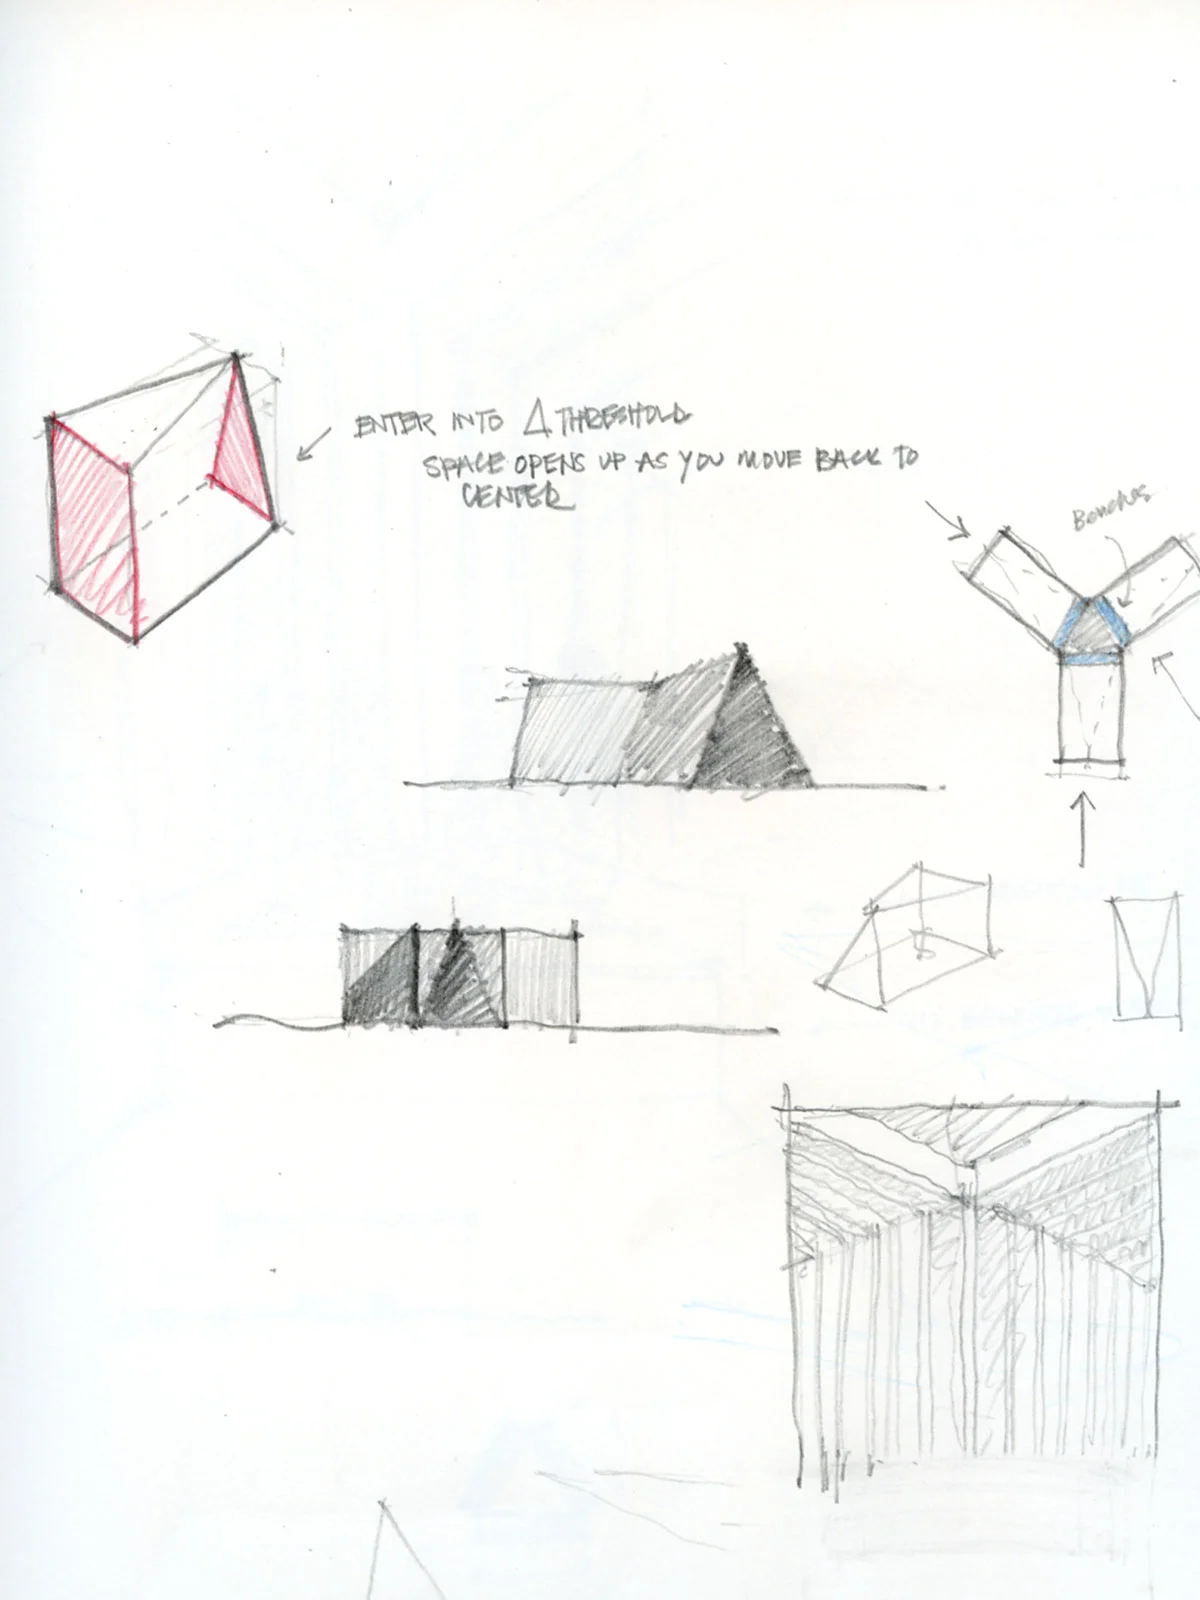 ENTER INTO Δ THRESHOLD
SPACE OPENS UP AS YOU MOVE BACK TO
CENTER
Benches